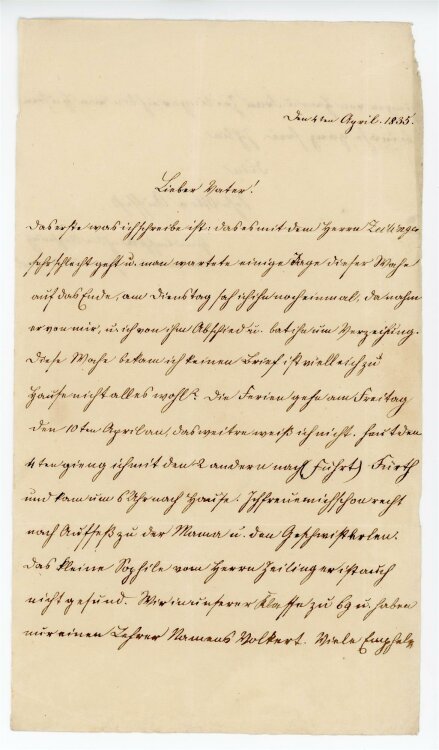 Den 4ten April. 1835.
Lieber Vater!
Das erste was ich schreibe ist: das es mit dem Herrn
sehr schlecht geht u. man wartete einige Tage dieser Wache
auf das Ende, am Dienstag sah ich ihn noch einmal, da nahm
er von mir, u. ich von ihm Abschied u. bat ihn um Verzeihung.
Diese Wache bekam ich keinen Brief ist vielleich zu
Hause nicht alles wohl? Die Ferien gehn am Freitag
den 10ten April an, das weitre weiß ich nicht. Heut den
4ten gieng ich mit den 2 andern nach (Führt) Fürth
und kam um 6 Uhr nach Hause. Ich freue mich schon recht
nach Aufseß zu der Mama u. den Geschwisterlen.
Das kleine Sophile vom Herrn Zeilinger ist auch
nicht gesund. Wir in unserer Klasse zu 69 u. haben
nur einen Lehrer Namens Volkert. Viele